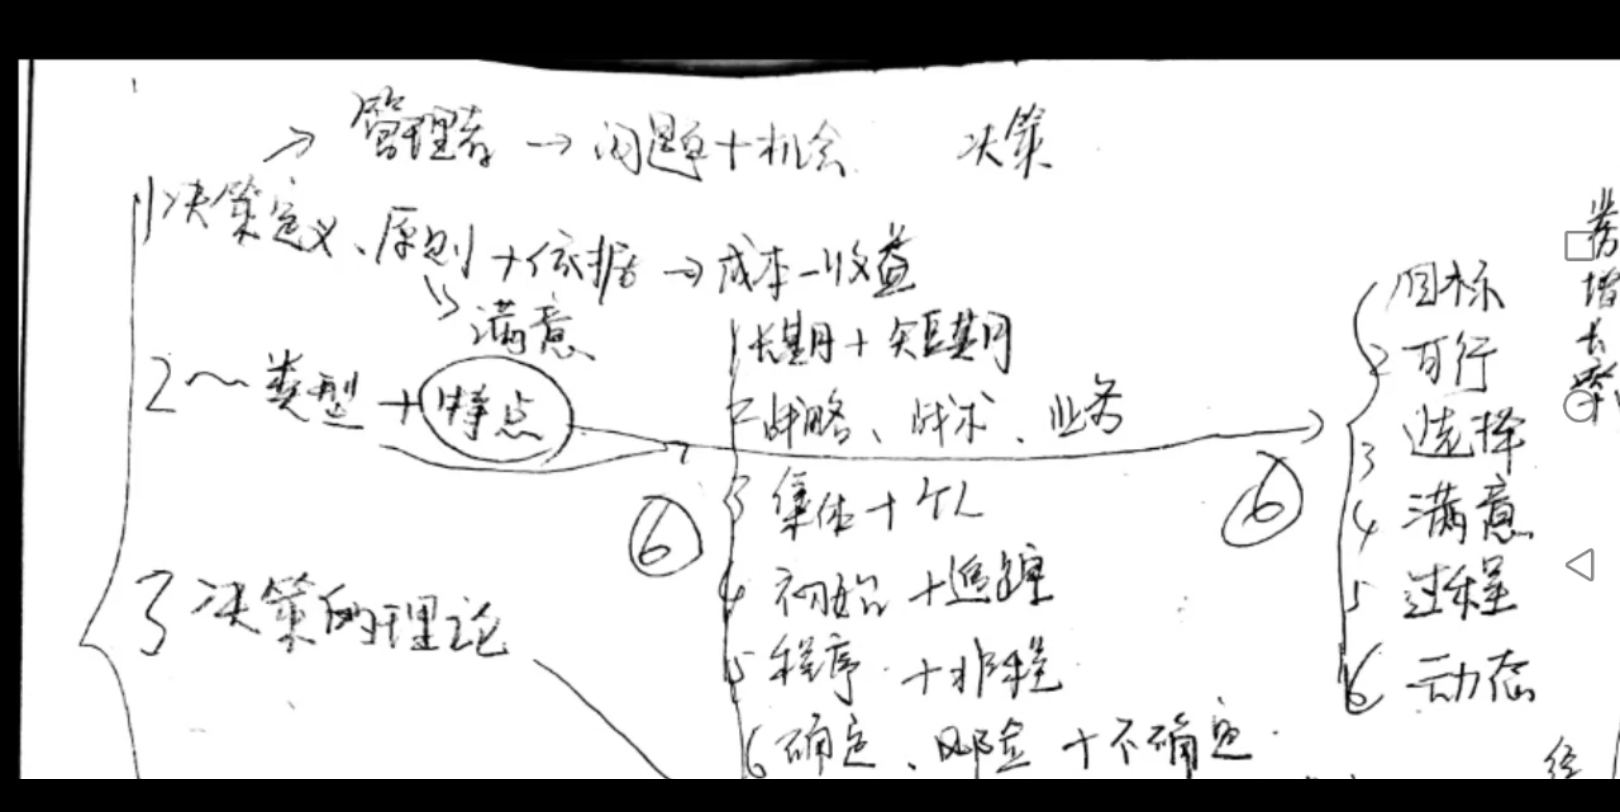 管理者 → 问题 + 机会 决策
1 决策定义、原则 + 依据 → 成本 - 收益
满意
2 ~ 类型 + 特点
⑥
1 长期 + 短期
2 战略、战术、业务
3 集体 + 个人
4 初始 + 追踪
5 程序 + 非程
6 确定、风险 + 不确定
⑥
目标
2 可行
3 选择
4 满意
5 过程
6 动态
3 决策的理论
增
长